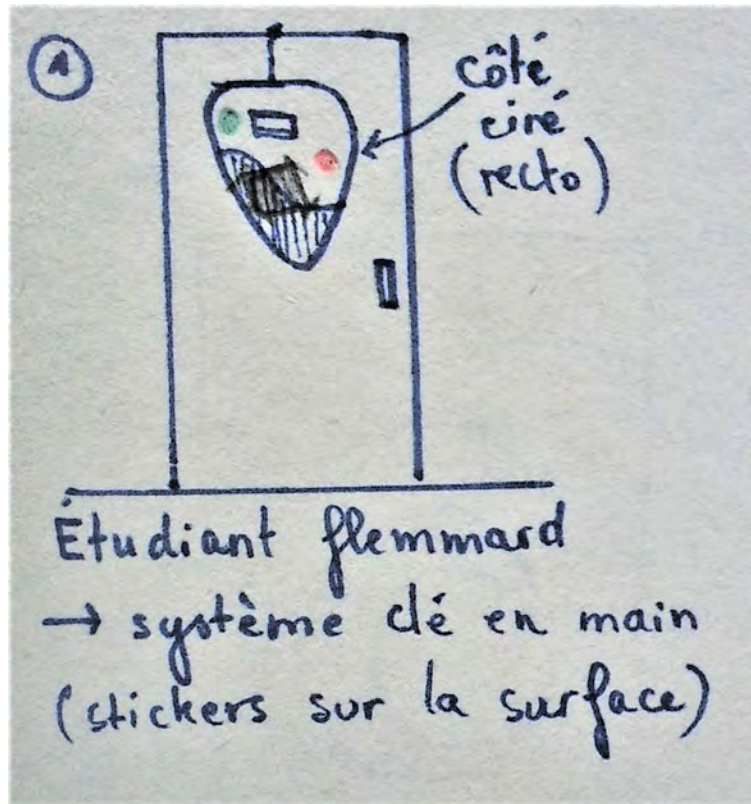 1
côté
ciré
(recto)
Étudiant flemmard
→ système clé en main
(stickers sur la surface)